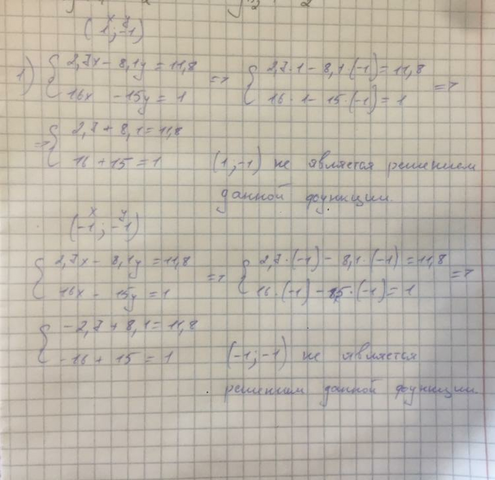 x y
(1; -1)
1) { 2,7x - 8,1y = 11,8 => { 2,7·1 - 8,1·(-1) = 11,8 =>
16x - 15y = 1 16·1 - 15·(-1) = 1
=> { 2,7 + 8,1 = 11,8
16 + 15 = 1 (1; -1) не является решением
данной функции.
x y
(-1; -1)
{ 2,7x - 8,1y = 11,8 => { 2,7·(-1) - 8,1·(-1) = 11,8 =>
16x - 15y = 1 16·(-1) - 15·(-1) = 1
{ -2,7 + 8,1 = 11,8
-16 + 15 = 1 (-1; -1) не является
решением данной функции